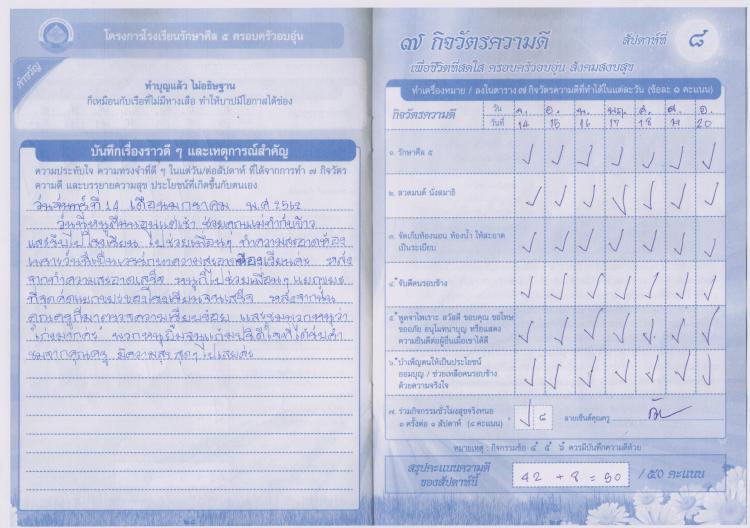 โครงการโรงเรียนรักษาศีล ๕ ครอบครัวอบอุ่น
คำขวัญ
ทำบุญแล้ว ไม่อธิษฐาน
ก็เหมือนกับเรือที่ไม่มีหางเสือ ทำให้บาปมีโอกาสได้ช่อง
บันทึกเรื่องราวดี ๆ และเหตุการณ์สำคัญ
ความประทับใจ ความทรงจำที่ดี ๆ ในแต่วัน/ต่อสัปดาห์ ที่ได้จากการทำ ๗ กิจวัตร
ความดี และบรรยายความสุข ประโยชน์ที่เกิดขึ้นกับตนเอง
วันจันทร์ที่ 14 เดือนมกราคม พ.ศ 2562
วันนี้หนูตื่นนอนแต่เช้า ช่วยคุณแม่ทำกับข้าว
และรีบไปโรงเรียน ไปช่วยเพื่อนๆ ทำความสะอาดห้อง
ห้องเรียนค่ะ หลัง
จากทำความสะอาดเสร็จ หนูก็ไปช่วยเพื่อนๆ แยกขยะ
ที่จุดคัดแยกขยะของโรงเรียนจนเสร็จ หลังจากนั้น
คุณครูก็มาตรวจความเรียบร้อย และชมพวกหนูว่า
เก่งมากค่ะ พวกหนูยิ้มจนแก้มปริดีใจที่ได้รับคำ
ชมจากคุณครู มีความสุข สุดๆ ไปเลยค่ะ
๗ กิจวัตรความดี สัปดาห์ที่ ๘
เพื่อชีวิตที่สดใส ครอบครัวอบอุ่น สังคมสงบสุข
ทำเครื่องหมาย / ลงในตาราง ๗ กิจวัตรความดีที่ทำได้ในแต่ละวัน (ข้อละ ๑ คะแนน)
กิจวัตรความดี วัน จ. อ. พ. พฤ. ศ. ส. อ.
วันที่ 14 15 16 17 18 19 20
๑. รักษาศีล ๕ / / / / / / /
๒. สวดมนต์ นั่งสมาธิ / / / / / / /
๓. จัดเก็บห้องนอน ห้องน้ำ ให้สะอาด
เป็นระเบียบ / / / / / / /
๔. จับดีคนรอบข้าง / / / / / / /
๕. พูดจาไพเราะ สวัสดี ขอบคุณ ขอโทษ
ขออภัย อนุโมทนาบุญ หรือแสดง
ความยินดีต่อผู้อื่นเมื่อเขาได้ดี / / / / / / /
๖. บำเพ็ญตนให้เป็นประโยชน์
ออมบุญ / ช่วยเหลือคนรอบข้าง
ด้วยความจริงใจ / / / / / / /
๗. ร่วมกิจกรรมชั่วโมงสุขจริงหนอ
๑ ครั้งต่อ ๑ สัปดาห์ (๘ คะแนน) / ๘ ลายเซ็นต์คุณครู
หมายเหตุ : กิจกรรมข้อ ๔ ๕ ๖ ควรมีบันทึกความดีด้วย
สรุปคะแนนความดี
ของสัปดาห์นี้ 42 + 8 = 50 / ๕๐ คะแนน